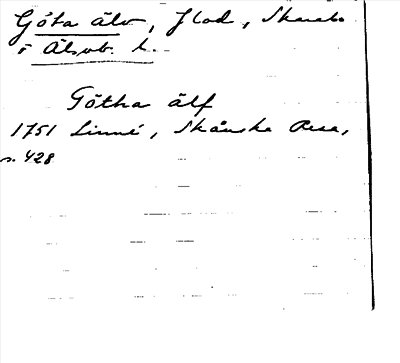 Göta älv, flod, Skarab.
o Älvsb. l.
Götha älf
1751 Linné, Skånska Resa,
s. 428